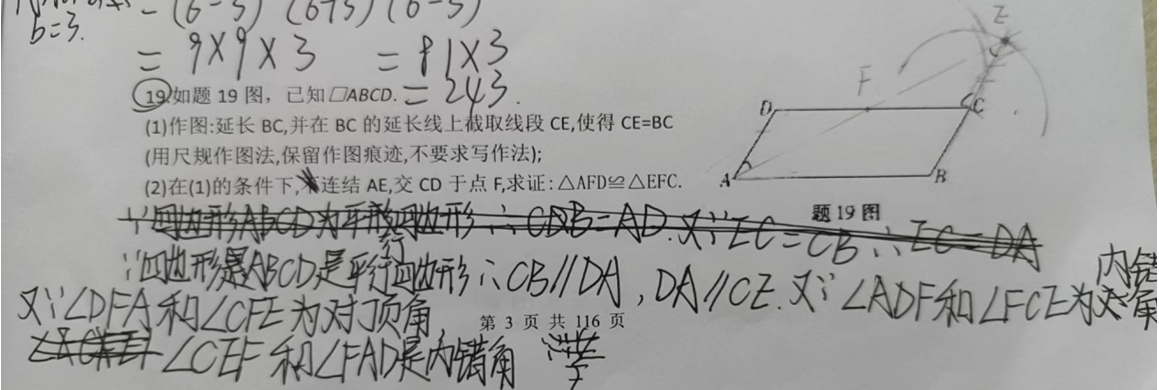 b=3.
= 9×9×3 = 81×3
= 243.
19.如题 19 图，已知□ABCD.
(1)作图:延长 BC,并在 BC 的延长线上截取线段 CE,使得 CE=BC
(用尺规作图法,保留作图痕迹,不要求写作法);
(2)在(1)的条件下,连结 AE,交 CD 于点 F,求证:△AFD≌△EFC.
E
F
D C
A B
题 19 图
∵四边形ABCD为平行四边形∴CB=AD.又∵EC=CB∴EC=DA
∵四边形是ABCD是平行四边形∴CB∥DA,DA∥CE.又∵∠ADF和∠FCE为内错角
又∵∠DFA和∠CFE为对顶角,
第 3 页 共 116 页
∠CEF和∠FAD是内错角